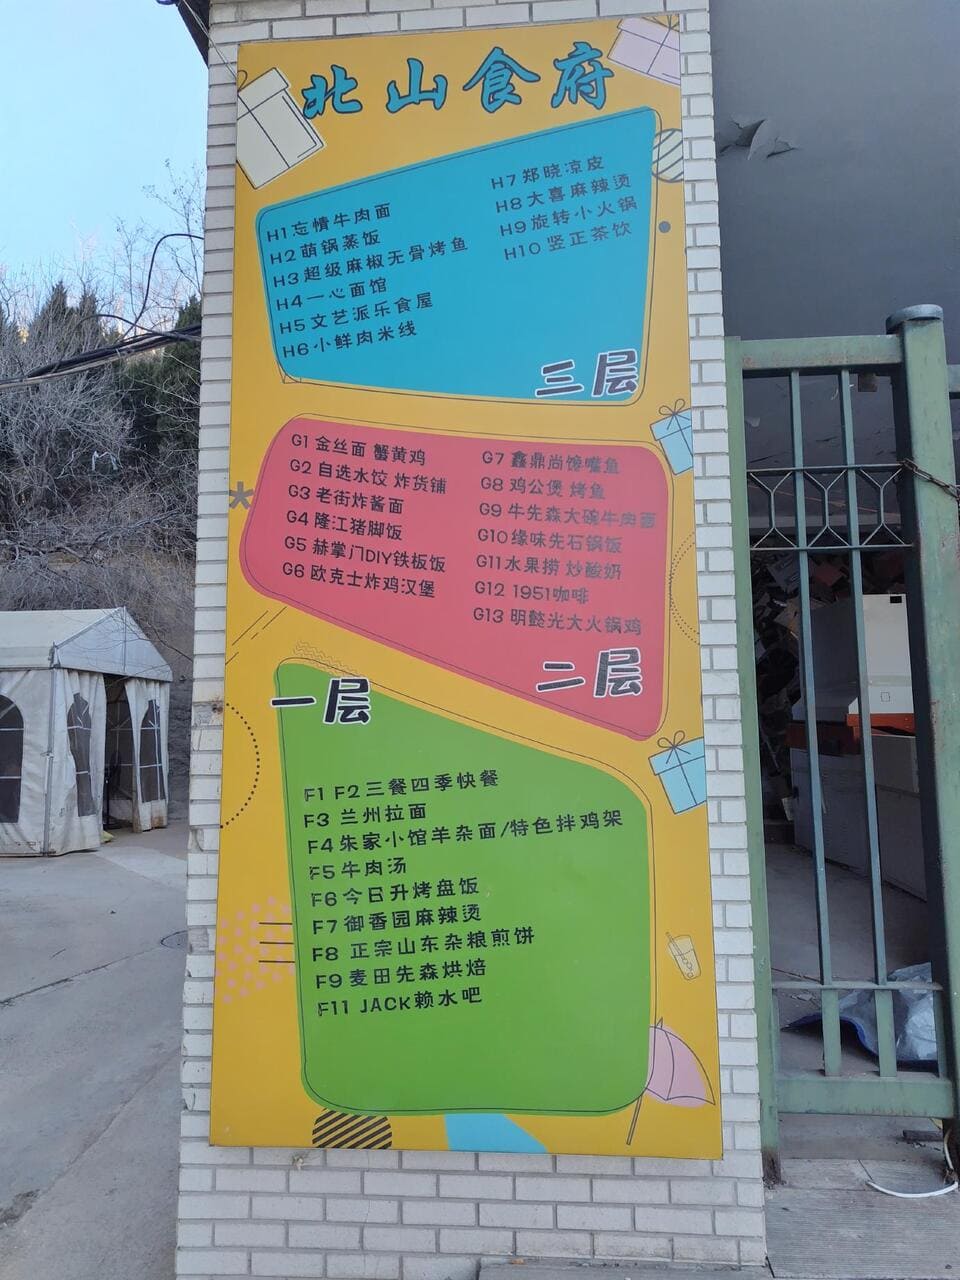 北山食府
H1 忘情牛肉面
H2 萌锅蒸饭
H3 超级麻椒无骨烤鱼
H4 一心面馆
H5 文艺派乐食屋
H6 小鲜肉米线
H7 郑晓凉皮
H8 大喜麻辣烫
H9 旋转小火锅
H10 竖正茶饮
三层
G1 金丝面 蟹黄鸡
G2 自选水饺 炸货铺
G3 老街炸酱面
G4 隆江猪脚饭
G5 赫掌门DIY铁板饭
G6 欧克士炸鸡汉堡
G7 鑫鼎尚馋嘴鱼
G8 鸡公煲 烤鱼
G9 牛先森大碗牛肉面
G10 缘味先石锅饭
G11 水果捞 炒酸奶
G12 1951咖啡
G13 明懿光大火锅鸡
二层
一层
F1 F2 三餐四季快餐
F3 兰州拉面
F4 朱家小馆羊杂面/特色拌鸡架
F5 牛肉汤
F6 今日升烤盘饭
F7 御香园麻辣烫
F8 正宗山东杂粮煎饼
F9 麦田先森烘焙
F11 JACK赖水吧